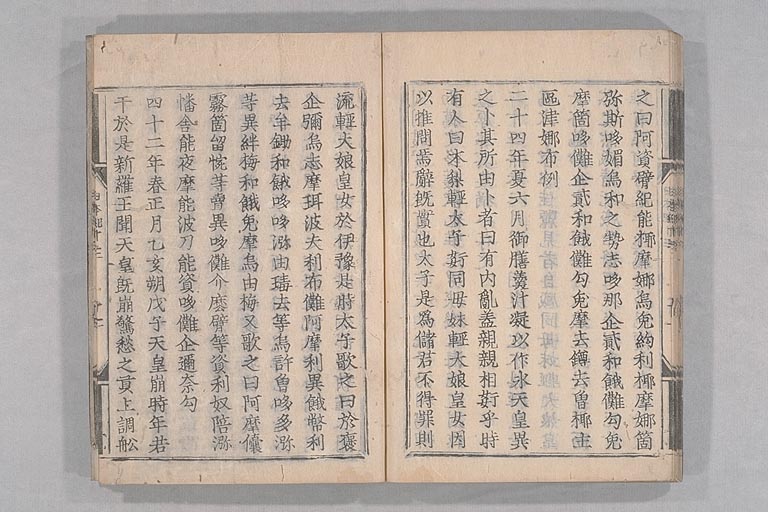 之曰阿資臂紀能椰摩娜烏兔絇利椰摩娜箇
弥斯哆媚烏和之勢志哆那企貳和餓儺勾兔
摩箇哆儺企貳和餓儺勾兔摩去鐏去曽椰主
區津娜布例
二十四年夏六月御膳羹汁凝以作氷天皇異
之卜其所由卜者曰有内亂盖親親相姧乎時
有人曰木梨輕太子姧同母妹輕大娘皇女因
以推問焉辭既實也太子是為儲君不得罪則
流輕大娘皇女於伊豫是時太子歌之曰於裒
企彌烏志摩珥波夫利布儺阿摩利異餓幣利
去牟鋤和餓哆哆瀰由璠去等烏許魯哆多瀰
等異絆梅和餓兔摩烏由梅又歌之曰阿摩儾
霧箇留惋等賣異哆儺介麽臂等資利奴陪瀰
幡舎能夜摩能波刀能資哆儺企邇奈勾
四十二年春正月乙亥朔戊子天皇崩時年若
干於是新羅王聞天皇既崩驚愁之貢上調舩